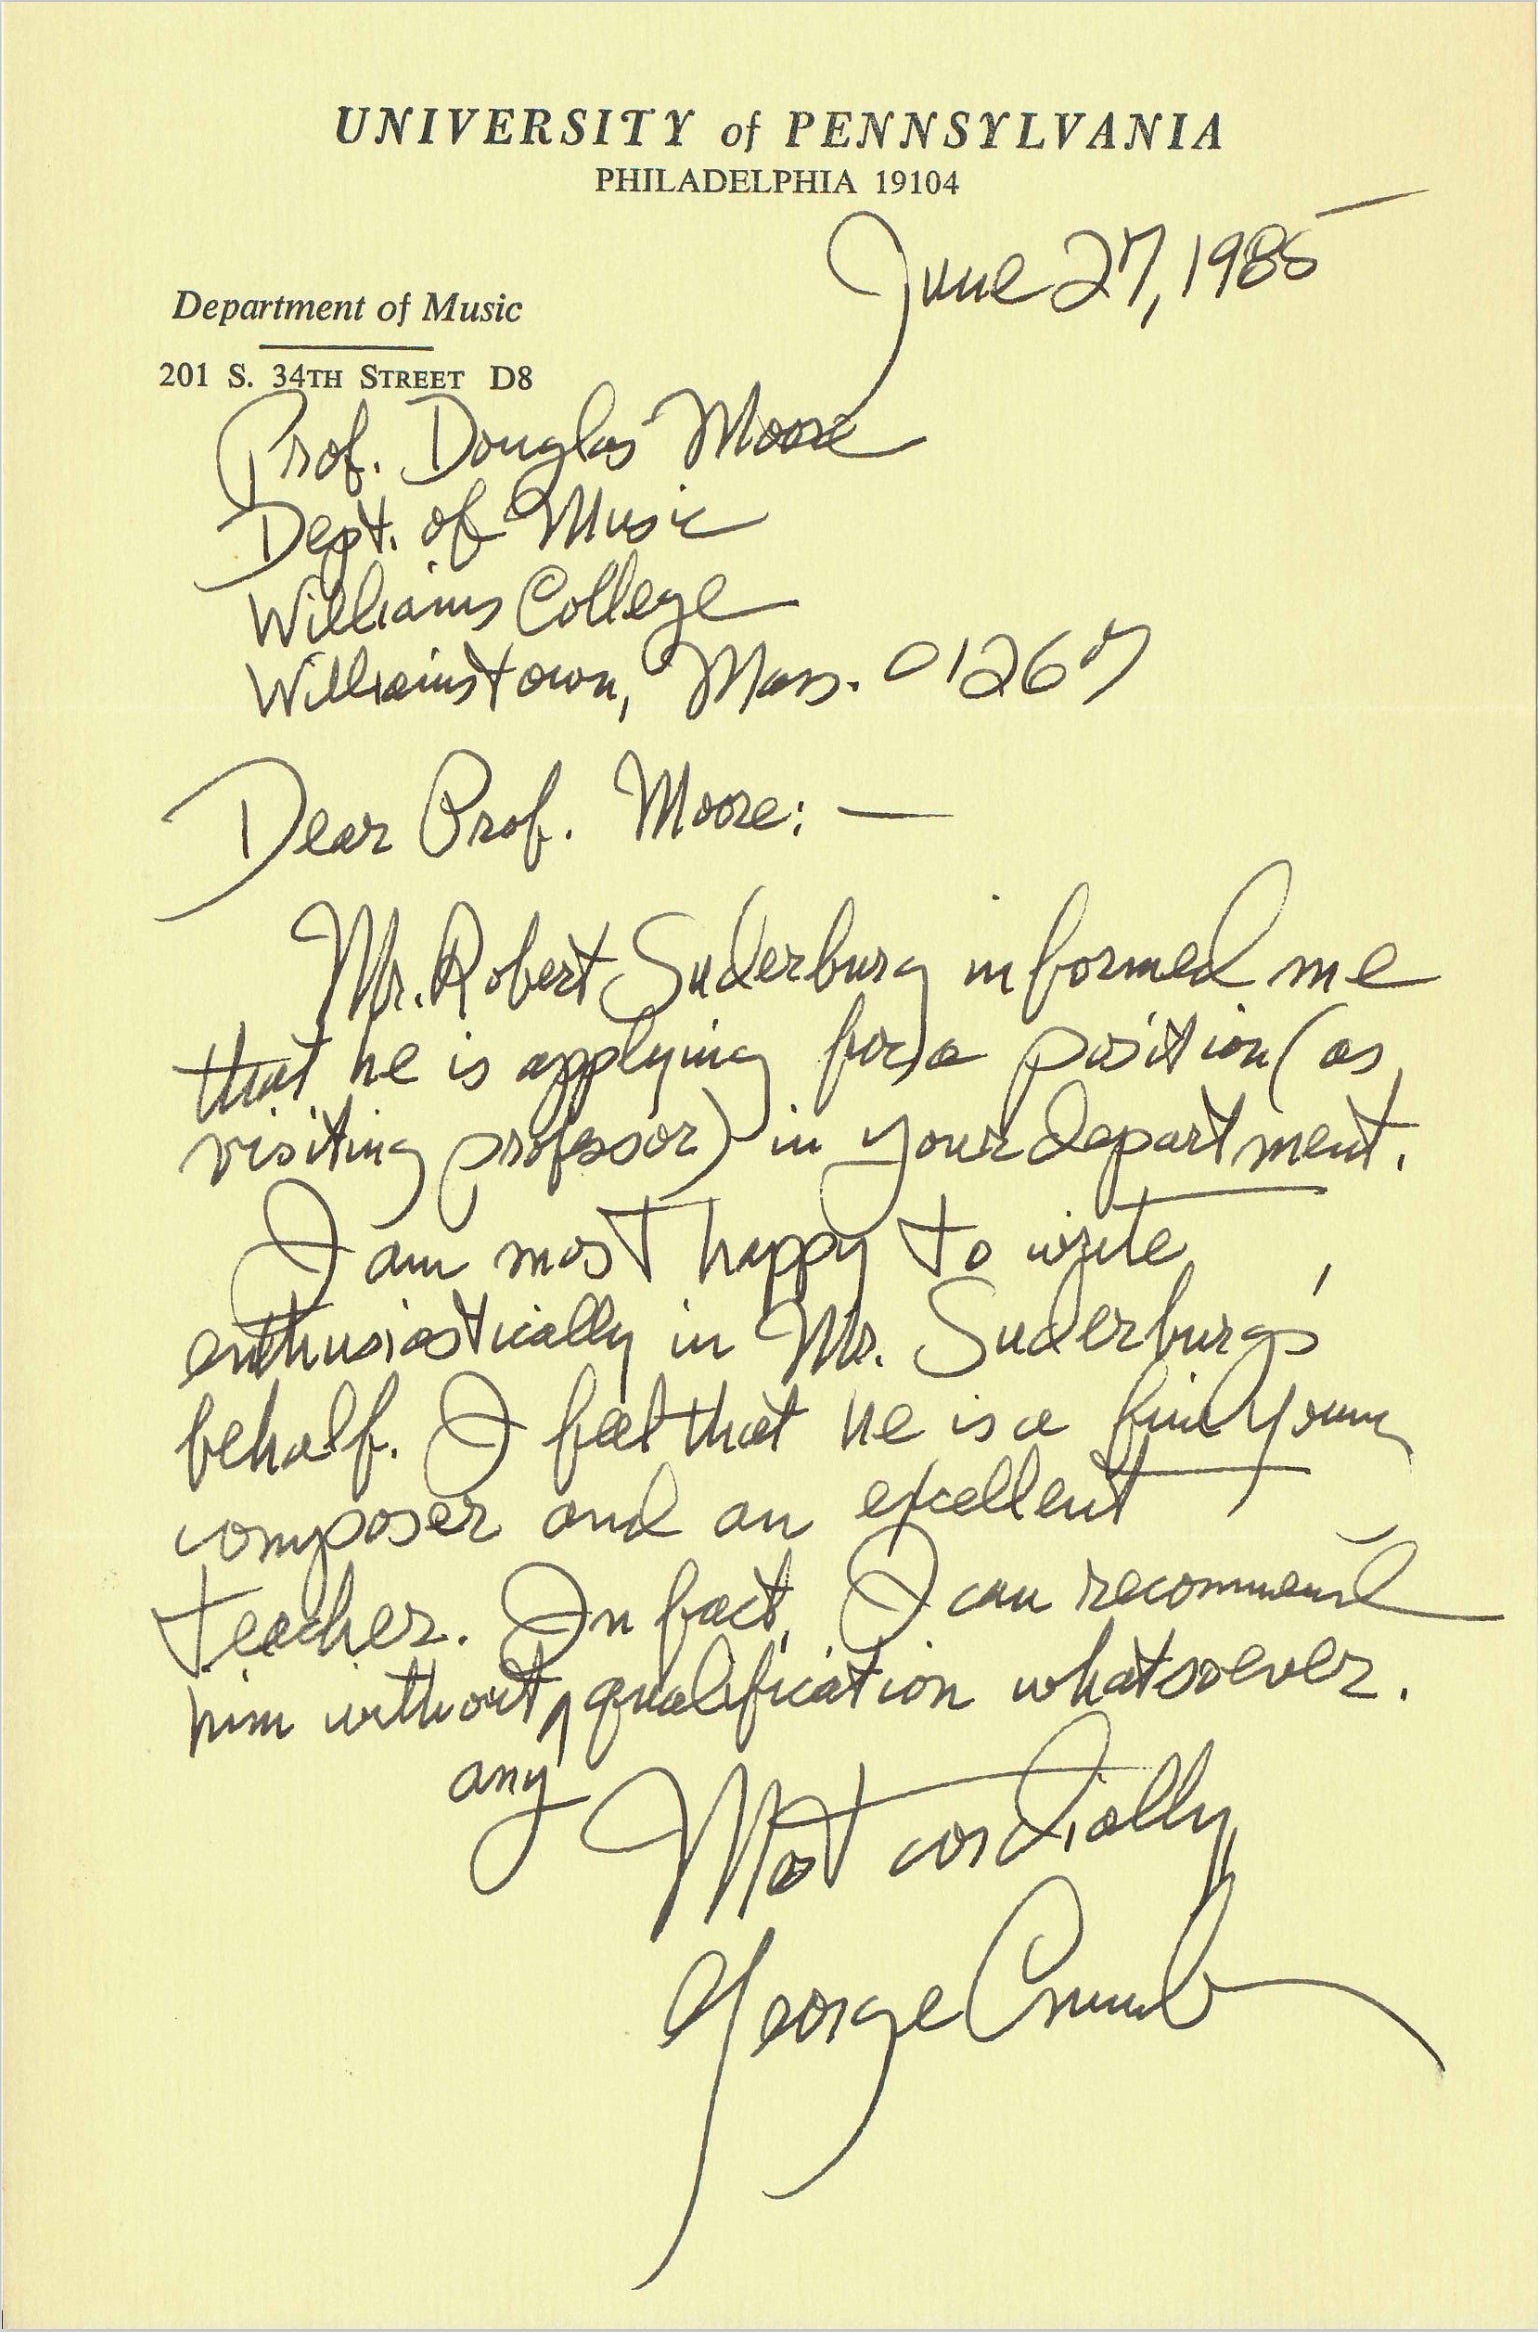 UNIVERSITY of PENNSYLVANIA
PHILADELPHIA 19104
June 27, 1985
Department of Music
201 S. 34TH STREET D8
Prof. Douglas Moore
Dept. of Music
Williams College
Williamstown, Mass. 01267
Dear Prof. Moore: —
Mr. Robert Suderburg informed me
that he is applying for a position (as
visiting professor) in your department.
I am most happy to write
enthusiastically in Mr. Suderburg's
behalf. I feel that he is a fine young
composer and an excellent
teacher. In fact, I can recommend
him without ^ qualification whatsoever.
any
Most cordially,
George Crumb